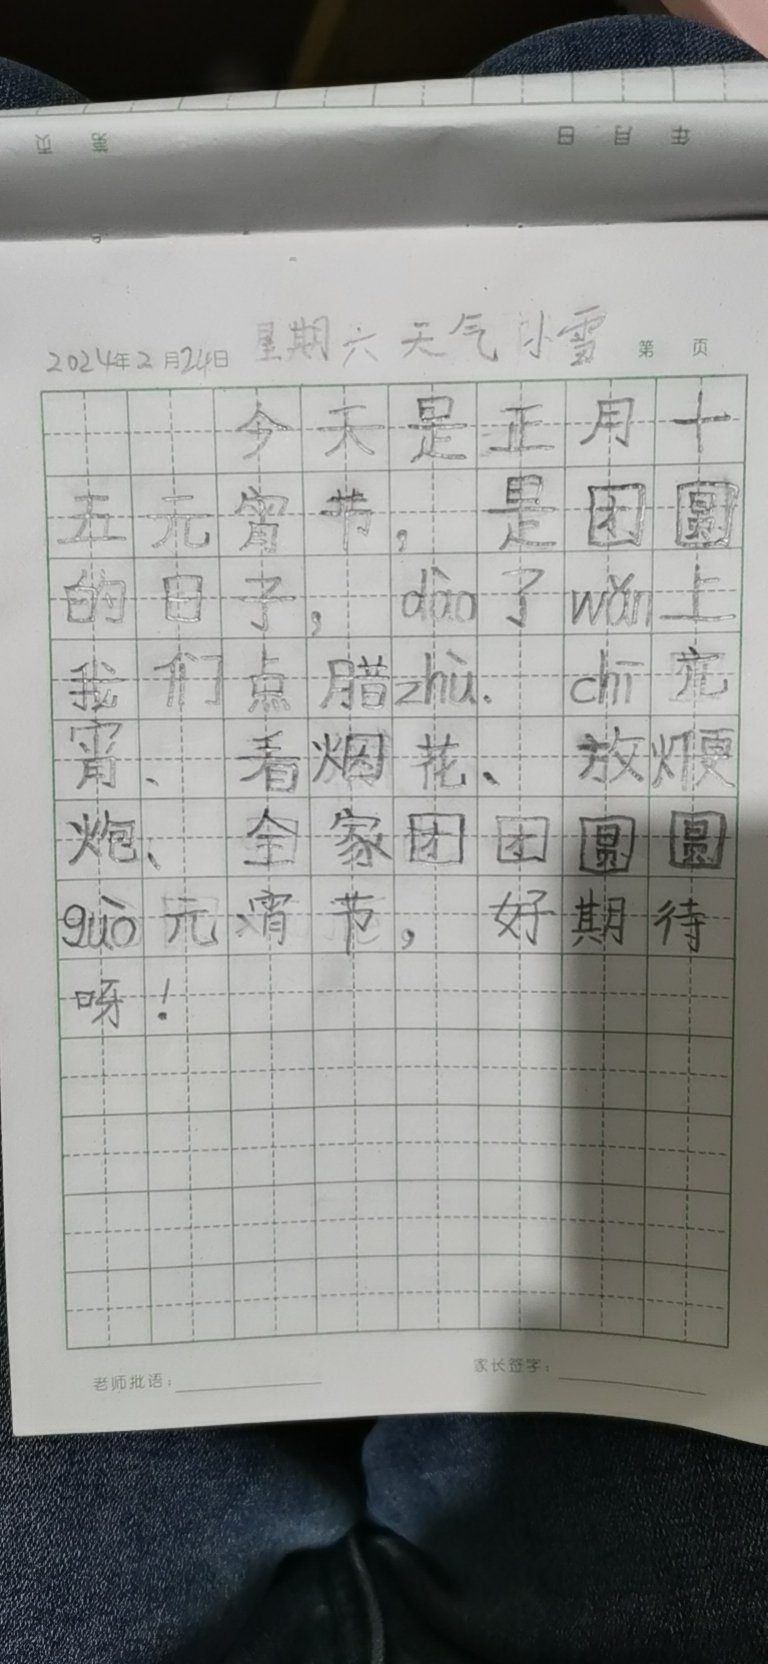 页 第 日 月 年
2024年2月24日 星期六 天气 小雪 第 页
今天是正月十
五元宵节，是团圆
的日子，dào了wǎn上
我们点腊zhù. chī元
宵、看烟花、放煙
炮、全家团团圆圆
guò元消节，好期待
呀！
老师批语： 家长签字：